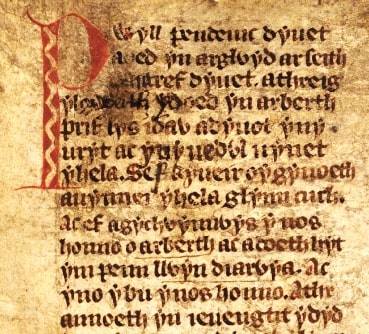 Pwyll pendeuic dyuet
a oed yn arglwyd ar seith
cantref dyuet. a threig
ylgweith ydoed yn arberth
prif lys idaw a dyuot yn y
uryt ac yn y uedwl uynet
y hela. Sef kyueir o'y gyuoeth
a uynnei y hela glynn cuch.
Ac ef a gychwynnwys y nos
honno o arberth ac a doeth hyt
ym penn llwyn diarwya. Ac
yno y bu y nos honno. A thr
annoeth yn ieuengtit y dyd